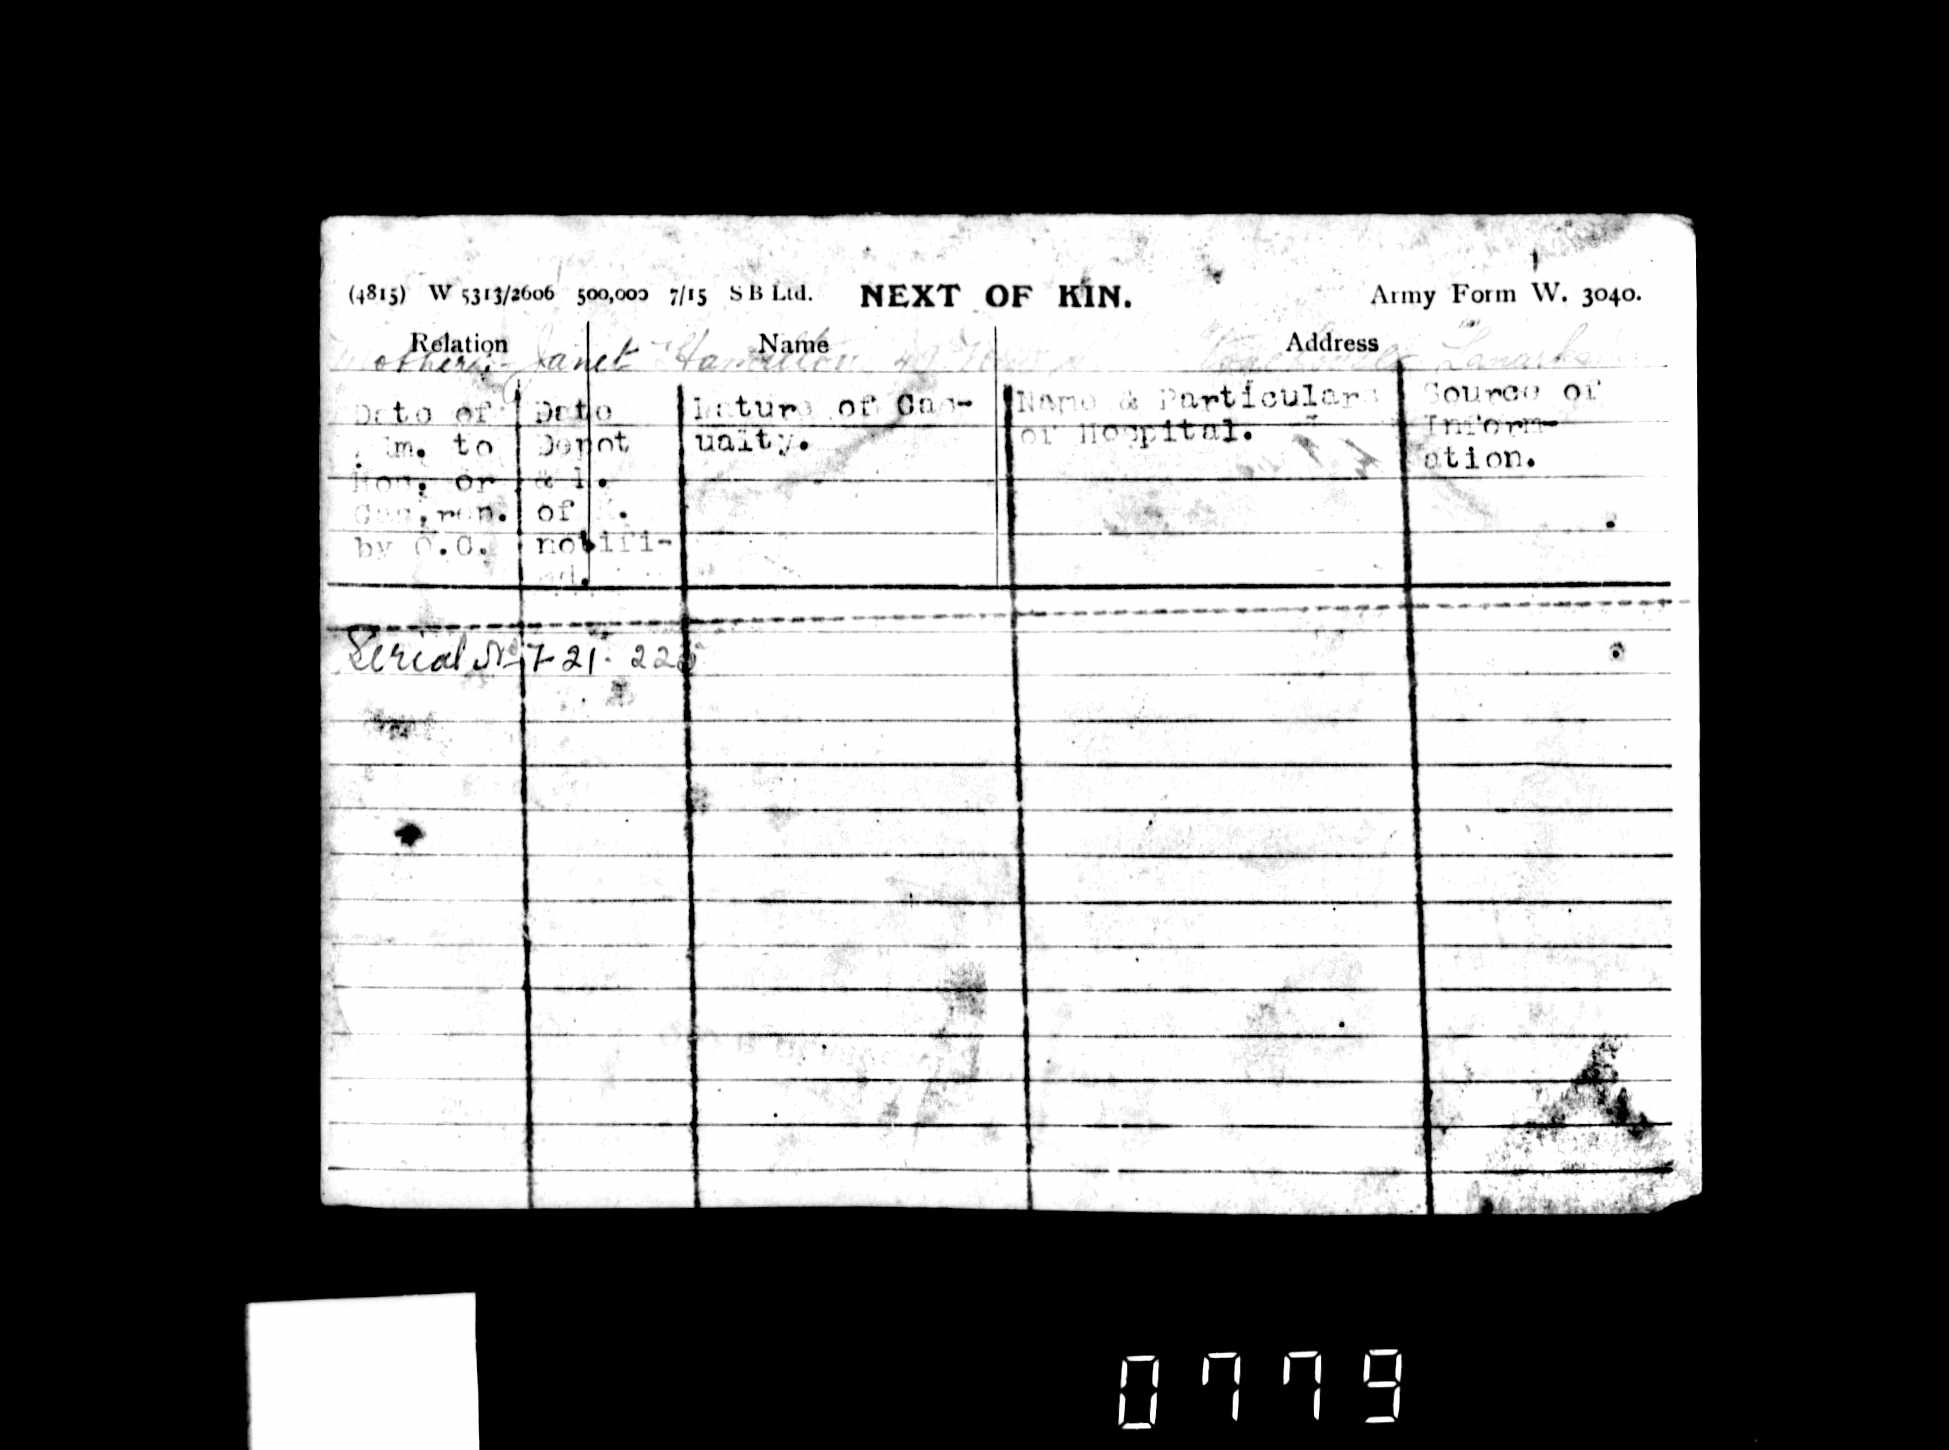 (4815) W 5313/2606 500,000 7/15 S B Ltd. NEXT OF KIN. Army Form W. 3040.
Relation Name Address
Mother:- Janet Hamilton 49
Date of Date Nature of Cas- Name & Particulars Source of
Adm. to Depot ualty. of Hospital. Inform-
Hos. or & N. ation.
Cas. rep. of K.
by O.C. notifi-
ed.
Serial No 7-21- 225
0779